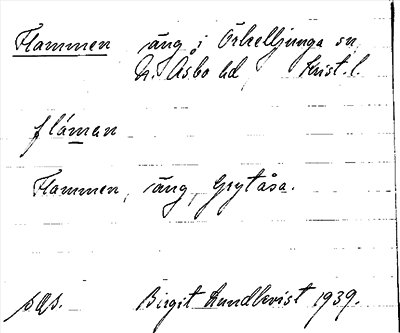 Flammen äng i Örkelljunga sn
N. Åsbo hd Krist. l.
flåman
Flammen, äng, Grytåsa.
sqs. Birgit Lundkvist 1939.